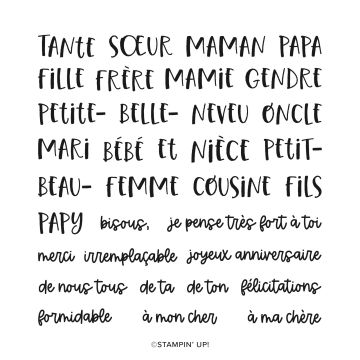 TANTE SŒUR MAMAN PAPA
FILLE FRÈRE MAMIE GENDRE
PETITE- BELLE- NEVEU ONCLE
MARI BÉBÉ ET NIÈCE PETIT-
BEAU- FEMME COUSINE FILS
PAPY bisous, je pense très fort à toi
merci irremplaçable joyeux anniversaire
de nous tous de ta de ton félicitations
formidable à mon cher à ma chère
©STAMPIN' UP!